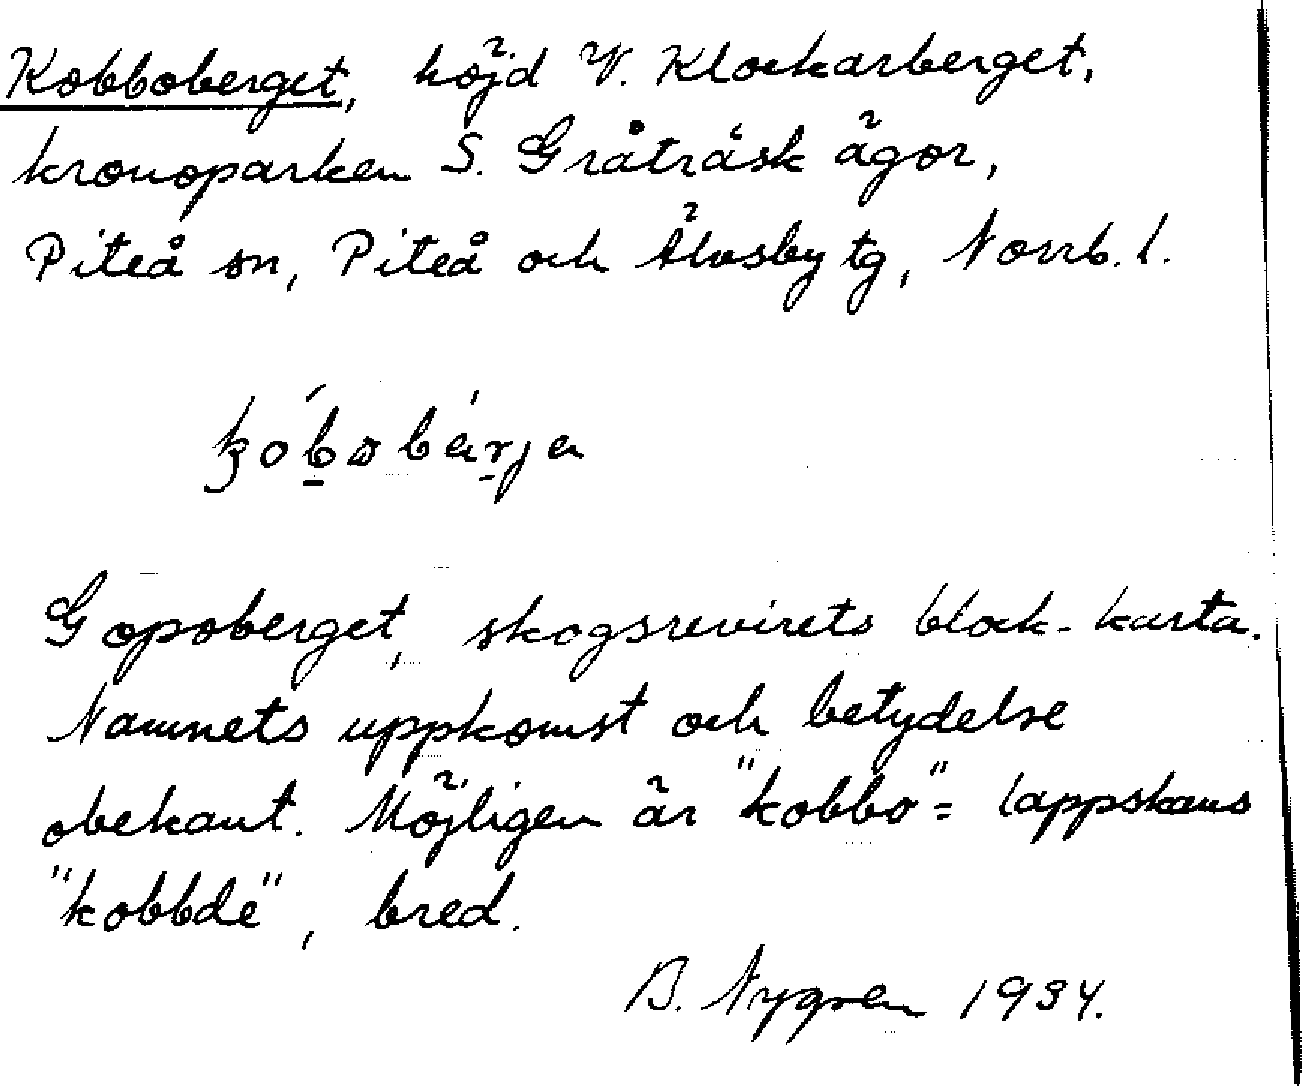 Kobboberget, höjd V. Klockarberget,
kronoparken S. Gråträsk ägor,
Piteå sn, Piteå och Älvsby tg, Norrb. l.
Gopoberget, skogsrevirets block-karta.
Namnets uppkomst och betydelse
obekant. Möjligen är "kobbo" = lappskans
"kobbde", bred.
B. Nygren 1934.